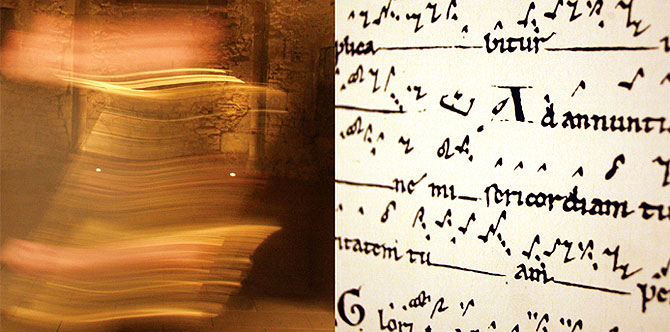 plica bitur
Ad annunti
ne mi sericordiam tu
ritatem tu am pe
Glori